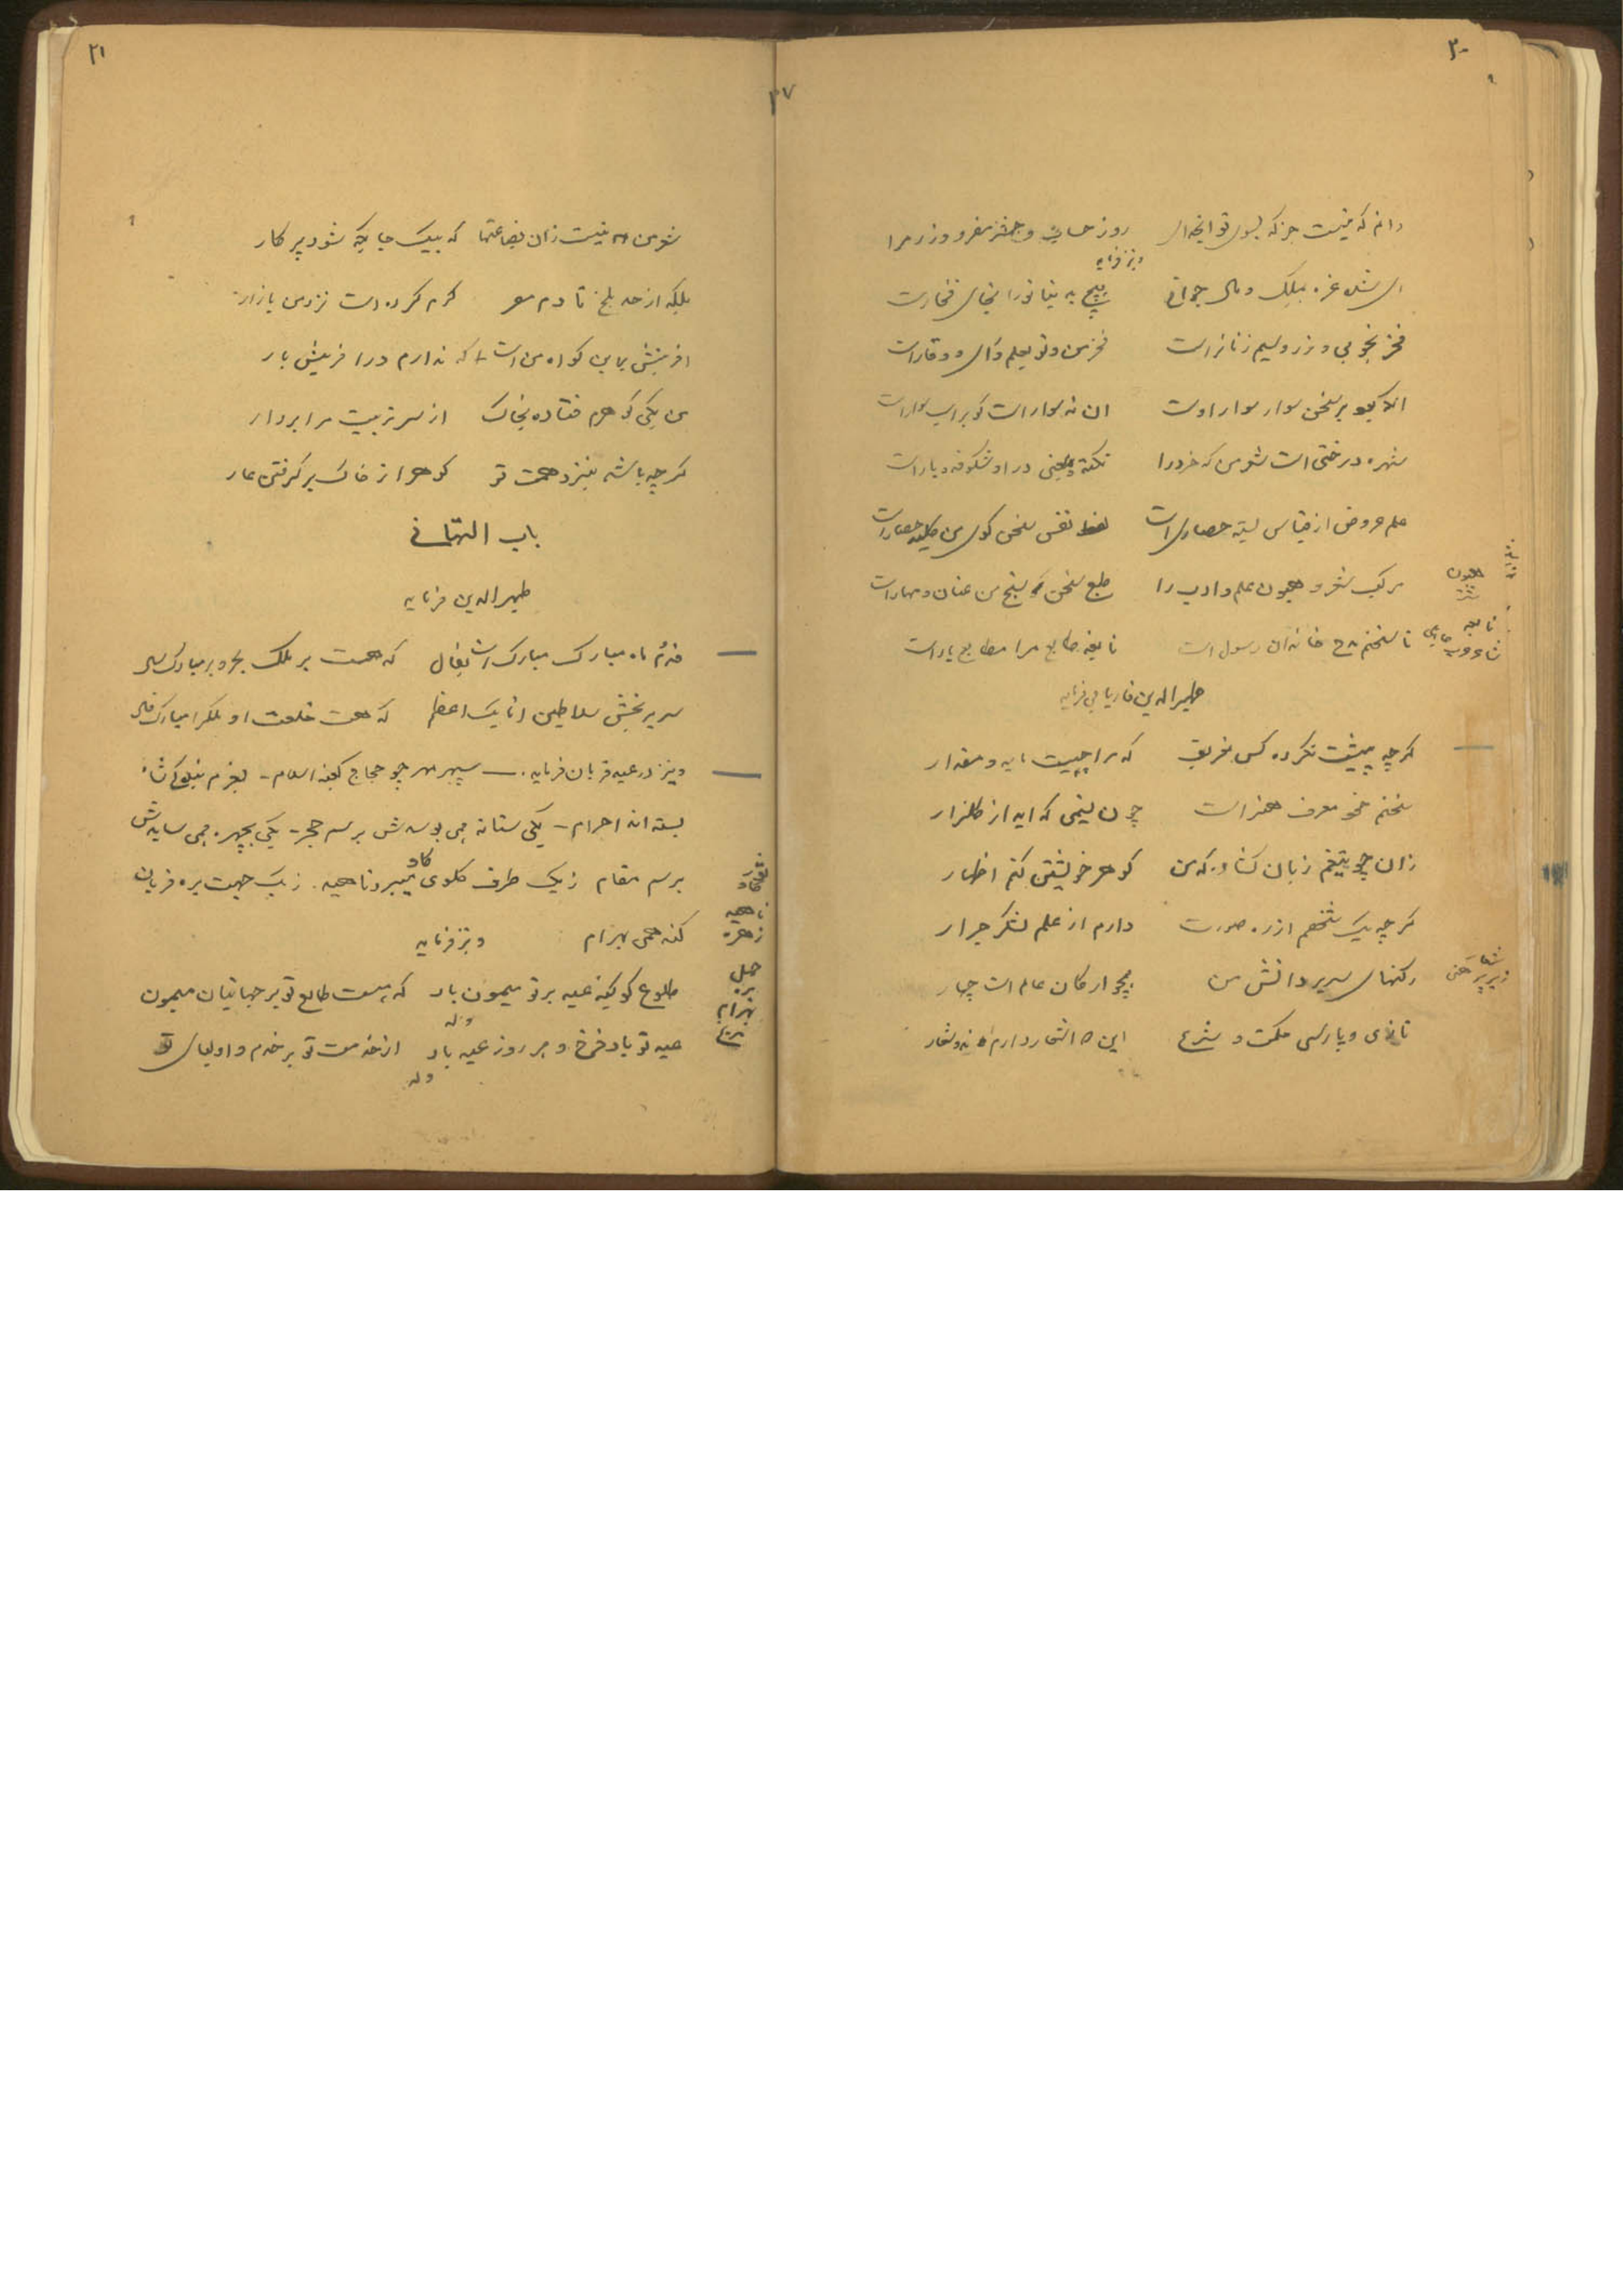 ۲۰
دانم که نیست جز که بسوی تو ایخدای روز حساب و حشر مفر و وزر مرا
ونیز فرماید
ای شده غره بملک و مال و جوانی هیچ بدینها ترا نه جای فخارست
فخر بخوبی و زر و سیم زنانراست فخر من و تو بعلم و رای و وقاراست
انکو بر سخن سوار سوار اوست ان نه سوار است کو بر اسب سواراست
شهره درختی است شعر من که خرد را نکته و معنی در او شکوفه و باراست
علم عروض از قیاس بسته حصاری است نفس سخن گوی من کلید حصاراست
مرکب شعر و هیون علم و ادب را طبع سخن سنج من عنان و مهاراست
تا سخنم مدح خاندان رسول است نابغه طبع مرا مطابع یاراست
هیون
نابغه
ظهیرالدین فاریابی فرماید
گر چه پیشت نکرده کس تعریف که مرا چیست مایه و مقدار
سخنم خود معرف هنر است چون نسیمی که اید از گلزار
زان چو تیغم زبان کشاد که من گوهر خویشتن کنم اظهار
گر چه یک شخصم از ره صورت دارم از علم لشکر جرار
رکنهای سریر دانش من همچو ارکان عالم است چهار
تازی و پارسی حکمت و شرع این دارم
۲۷
۲۱
شعر من نیست زان بضاعتها که بیک جایگه شود پر کار
بلکه از حد بلخ تا دم مصر گرم کرده است نزد من بازار
افرینش بدین گواه من است که ندارم در افرینش یار
من یکی گوهرم فتاده بخاک از سر تربیت مرا بردار
گر چه باشد بنزد همت تو گوهر از خاک برگرفتن عار
باب التهانی
ظهیرالدین فرماید
قدوم ماه مبارک مبارک است بفال که هست بر ملک بحر و بر مبارک سال
سریر بخش سلاطین اتابک اعظم که هست خلعت او ملک را مبارک فال
ونیز در عید قربان فرماید سپهر مهر چو حجاج کعبه اسلام - بعزم
بسته اند احرام - یکی ستانه همی بوسدش برسم حجر - یکی بچهره همی سایدش
برسم مقام زیک طرف گلوی گاو میبرد ناهید زیک جهت بره قربان
کند همی بهرام ونیز فرماید
ناهید
زهره
حمل
بره
بهرام
مریخ
طلوع کوکبه عید بر تو میمون باد که هست طالع تو بر جهانیان میمون
وله
عید تو باد فرخ و هر روز عید باد از خدمت تو بر خدم و اولیای تو
وله